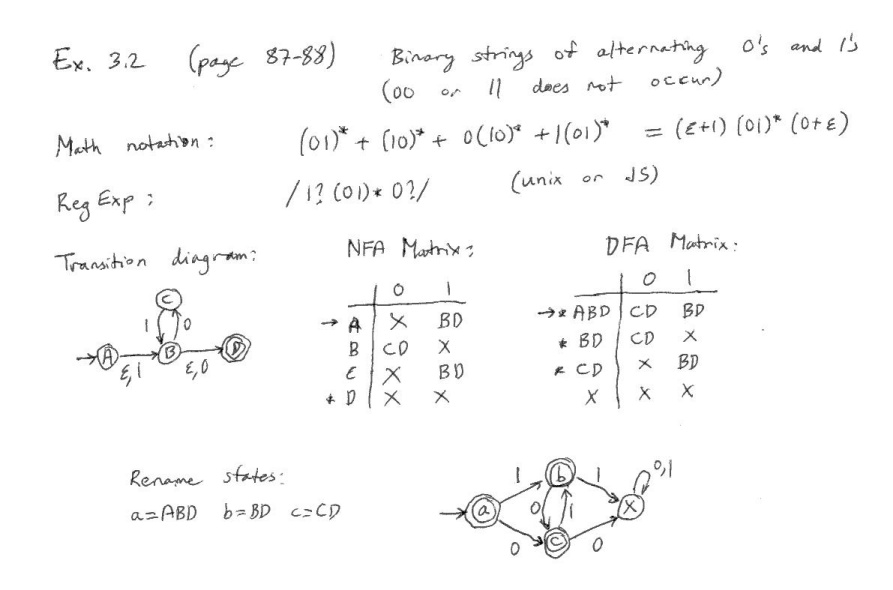 Ex. 3.2 (page 87-88) Binary strings of alternating 0's and 1's
(00 or 11 does not occur)
Math notation: (01)* + (10)* + 0(10)* + 1(01)* = (ε+1) (01)* (0+ε)
Reg Exp: /1?(01)*0?/ (unix or JS)
Transition diagram: NFA Matrix: DFA Matrix:
0 1
→ A X BD
B CD X
C X BD
* D X X
0 1
→* ABD CD BD
* BD CD X
* CD X BD
X X X
C
1 0
→ A B D
ε,1 ε,0
Rename states:
a=ABD b=BD c=CD
1 b 1 0,1
a 0 1 X
0 c 0